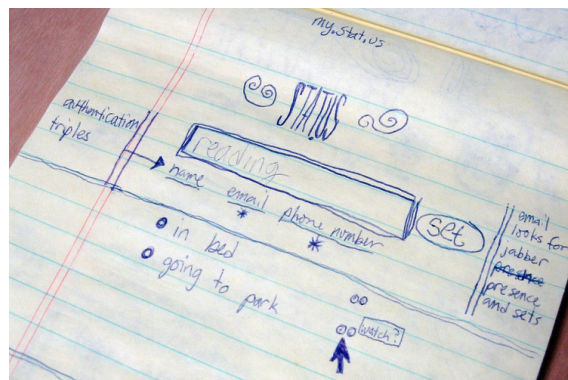 my.stat.us
STAT.US
authentication
triples
reading
name email phone number
* *
set
in bed
going to park
watch?
email
looks for
jabber
presence
presence
and sets